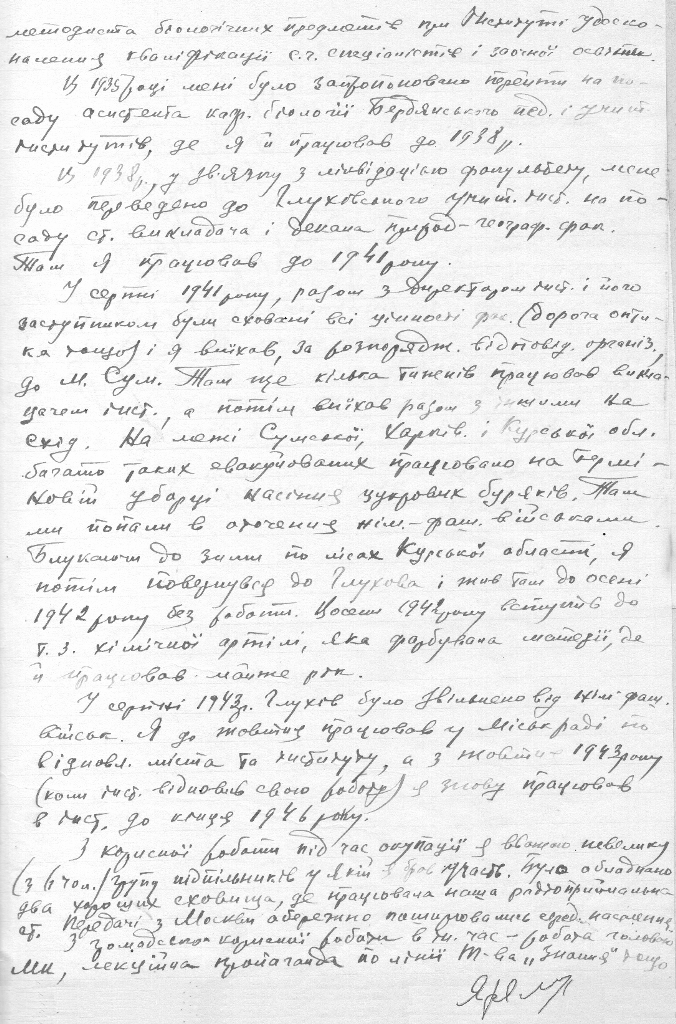 методиста біологічних предметів при Інституті удоско-
налення кваліфікації с.г. спеціалістів і заочної освіти.
В 1935 році мені було запропоновано перейти на по-
саду асистента каф. біології Бердянського пед. і учит.
інститутів, де я й працював до 1938 р.
В 1938 р., у зв'язку з ліквідацією факультету, мене
було переведено до Глухівського учит. інст. на по-
саду ст. викладача і декана природ-географ. фак.
Там я працював до 1941 року.
У серпні 1941 року, разом з директором інст. і його
заступником були сховані всі цінності (дорога опти-
ка тощо) і я виїхав, за розпорядж. відповід. організ.,
до м. Сум. Там ще кілька тижнів працював викла-
дачем інст., а потім виїхав разом з іншими на
схід. На межі Сумської, Харків. і Курської обл.
багато таких евакуйованих працювало на термі-
новій уборці насіння цукрових буряків. Там
ми попали в оточення нім.-фаш. військами.
Блукаючи до зими по лісах Курської області, я
потім повернувся до Глухова і жив там до осені
1942 року без роботи. Восени 1942 року вступив до
т. з. хімічної артілі, яка фарбувала матерії, де
й працював майже рік.
У серпні 1943 р. Глухів було звільнено від нім. фаш.
військ. Я до жовтня працював у міськраді по
відновл. міста та інституту, а з жовтня 1943 року
(коли інст. відновив свою роботу) я знову працював
в інст. до кінця 1946 року.
З корисної роботи під час окупації я вважаю невелику
(з чол.) групу підпільників у якій я брав участь. Було обладнано
два хороших сховища, де працювала наша радіоприймальна
ст. Передачі з Москви обережно поширювались серед населення.
З громадсько корисної роботи в т. час – робота
ми, лекційна пропаганда по лінії Т-ва „Знання" тощо